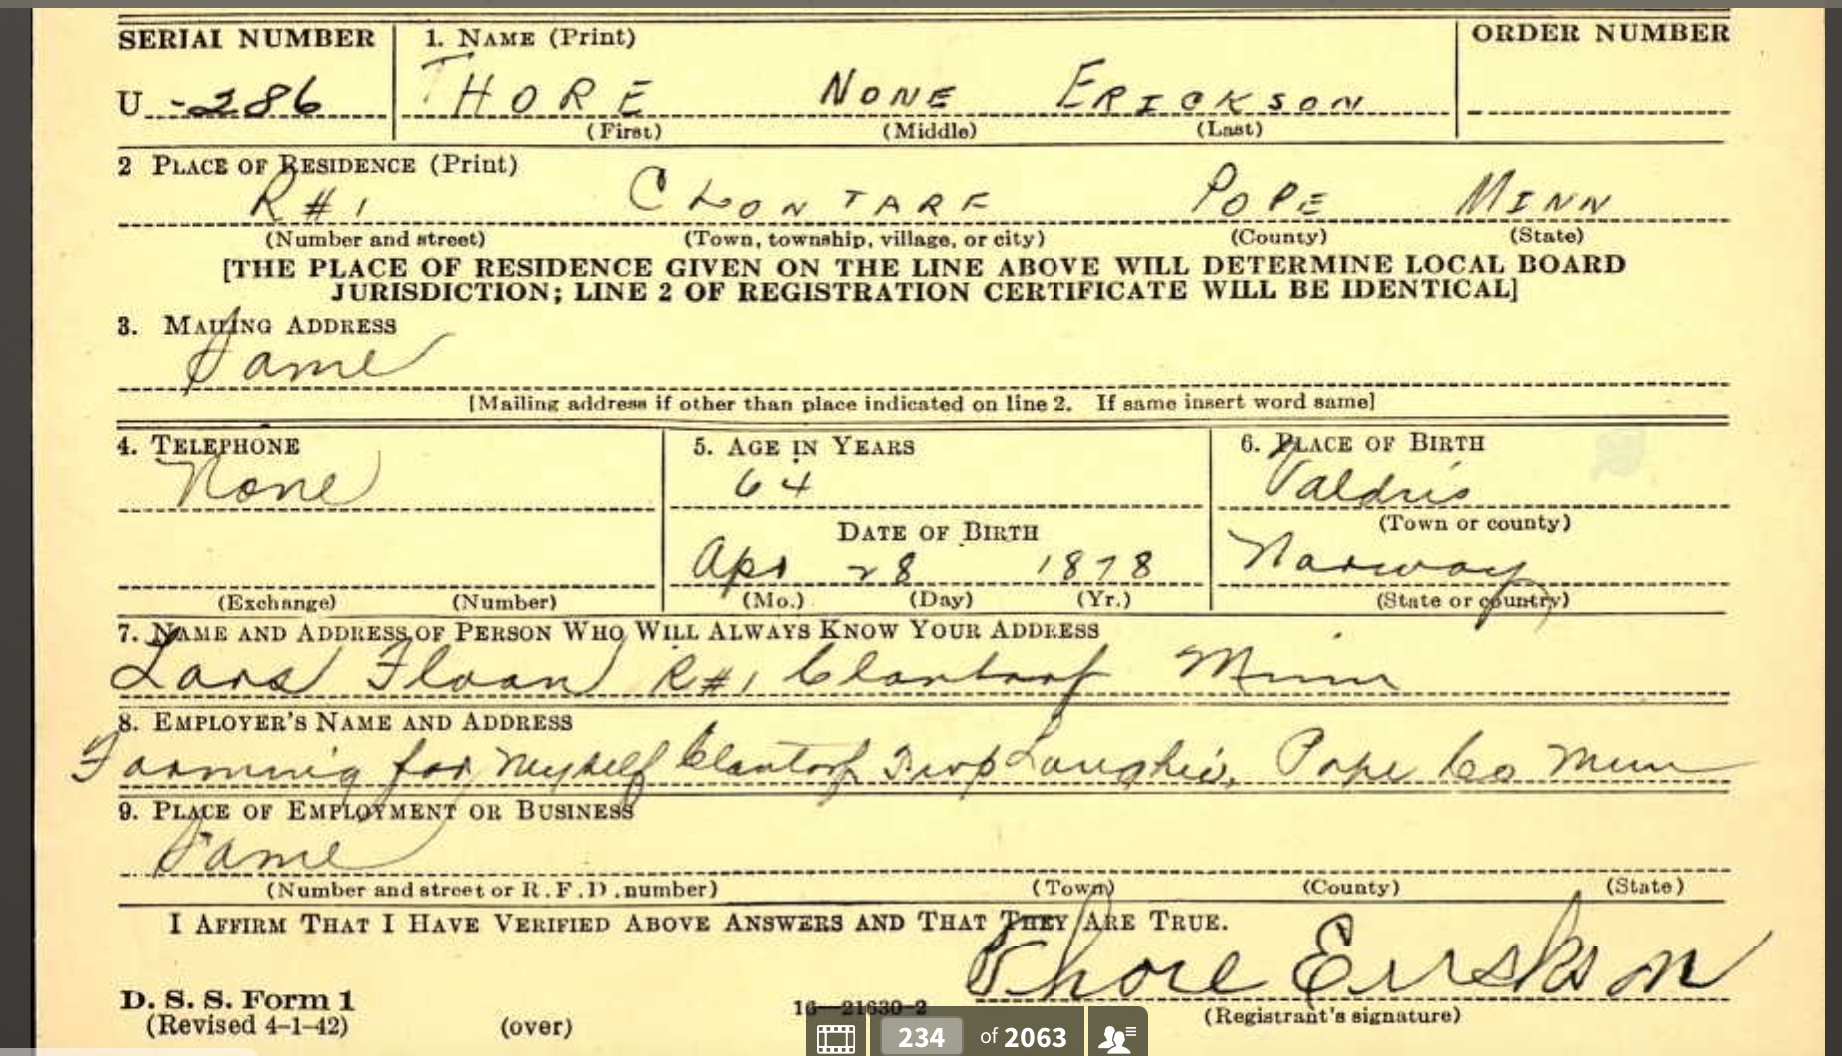 SERIAL NUMBER 1. NAME (Print) ORDER NUMBER
U -286 THORE NONE ERICKSON
(First) (Middle) (Last)
2 PLACE OF RESIDENCE (Print)
R#1 CLONTARF POPE MINN
(Number and street) (Town, township, village, or city) (County) (State)
[THE PLACE OF RESIDENCE GIVEN ON THE LINE ABOVE WILL DETERMINE LOCAL BOARD
JURISDICTION; LINE 2 OF REGISTRATION CERTIFICATE WILL BE IDENTICAL]
3. MAILING ADDRESS
Same
[Mailing address if other than place indicated on line 2. If same insert word same]
4. TELEPHONE 5. AGE IN YEARS 6. PLACE OF BIRTH
None 64 Valdris
(Town or county)
DATE OF BIRTH
Apr 28 1878 Norway
(Exchange) (Number) (Mo.) (Day) (Yr.) (State or country)
7. NAME AND ADDRESS OF PERSON WHO WILL ALWAYS KNOW YOUR ADDRESS
Lars Floan R#1 Clontarf Minn
8. EMPLOYER'S NAME AND ADDRESS
Farming for Myself Clontarf Pope Co Minn
9. PLACE OF EMPLOYMENT OR BUSINESS
Same
(Number and street or R.F.D. number) (Town) (County) (State)
I AFFIRM THAT I HAVE VERIFIED ABOVE ANSWERS AND THAT THEY ARE TRUE.
Thore Erickson
D. S. S. Form 1
(Revised 4-1-42) (over) 16—21630-2 (Registrant's signature)
234 of 2063